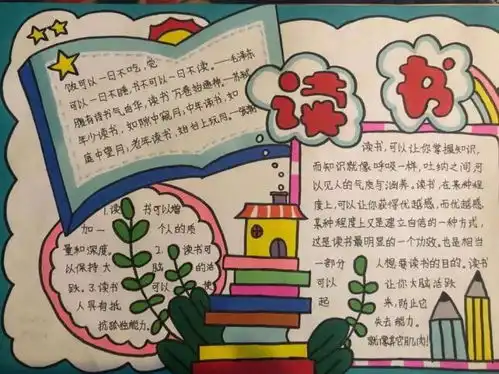 读书
饭可以一日不吃,觉
可以一日不睡,书不可以一日不读。——毛泽东
腹有诗书气自华,读书万卷始通神。——苏轼
年少读书,如隙中窥月,中年读书,如
庭中望月,老年读书,如台上玩月。——张潮
1.读书可以增
加一个人的质
量和深度。2.读书可
以保持大脑的活
跃。3.读书可以使
人具有抵
抗惰性能力。
读书,可以让你掌握知识,
而知识就像呼吸一样,吐纳之间可
以见人的气质与涵养。读书,在某种程
度上,可以让你获得优越感,而优越感
某种程度上又是建立自信的一种方式,
这是读书最明显的一个功效,也是相当
一部分人想要读书的目的。读书
可以让你大脑活跃
起来,防止它
失去能力。
就像其它肌肉!